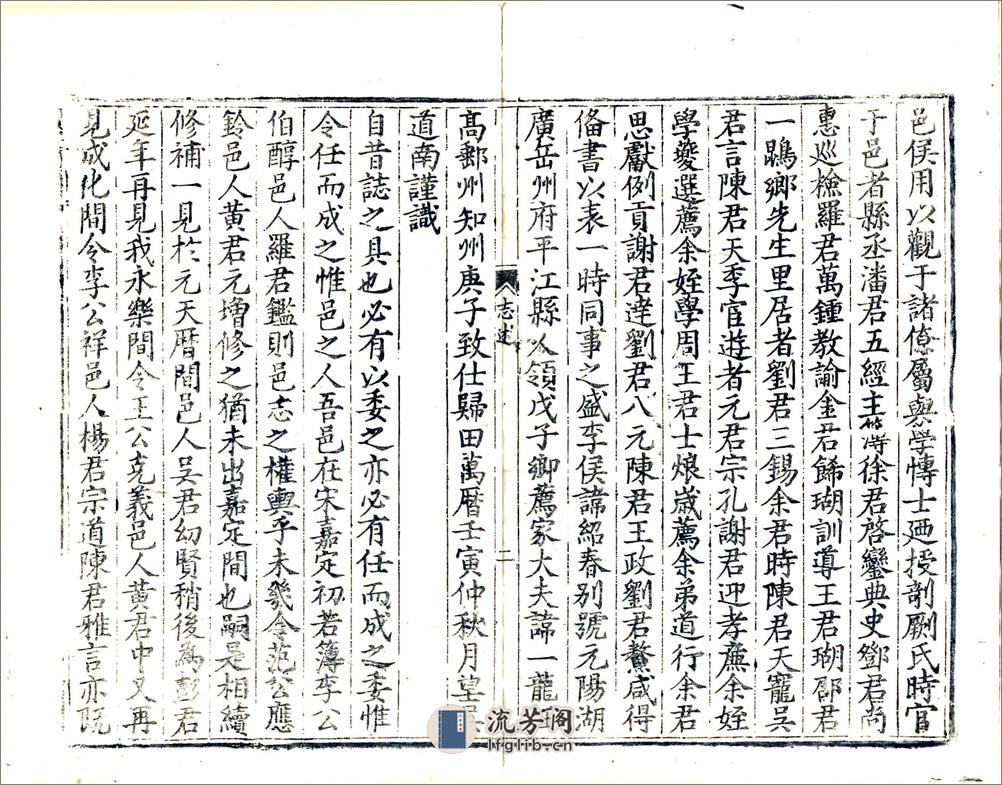 邑侯用以觀于諸僚屬與學博士廼授剞劂氏時官
于邑者縣丞潘君五經主簿徐君啓鑾典史鄧君尚
惠巡檢羅君萬鍾教諭金君歸瑚訓導王君瑚鄧君
一鵾鄉先生里居者劉君三錫余君時陳君天寵吳
君言陳君天季官遊者元君宗孔謝君迎孝廉余姪
學夔選薦余姪學周王君士烺歲薦余弟道行余君
思獻例貢謝君達劉君八元陳君王政劉君贊咸得
俻書以表一時同事之盛李侯諱紹春別號元陽湖
廣岳州府平江縣人領戊子鄉薦家大夫諱一龍
高郵州知州庚子致仕歸田萬曆壬寅仲秋月望
道南謹識
自昔誌之具也必有以委之亦必有任而成之委惟
令任而成之惟邑之人吾邑在宋嘉定初若簿李公
伯醇邑人羅君鑑則邑志之權輿乎未幾令范公應
鈴邑人黃君元增修之猶未出嘉定間也嗣是相續
修補一見於元天曆間邑人吳君幼賢稍後為彭君
延年再見我永樂間令王公克義邑人黃君中又再
見成化間令李公祥邑人楊君宗道陳君雅言亦既
志述
二
流芳阁
lfglib.cn